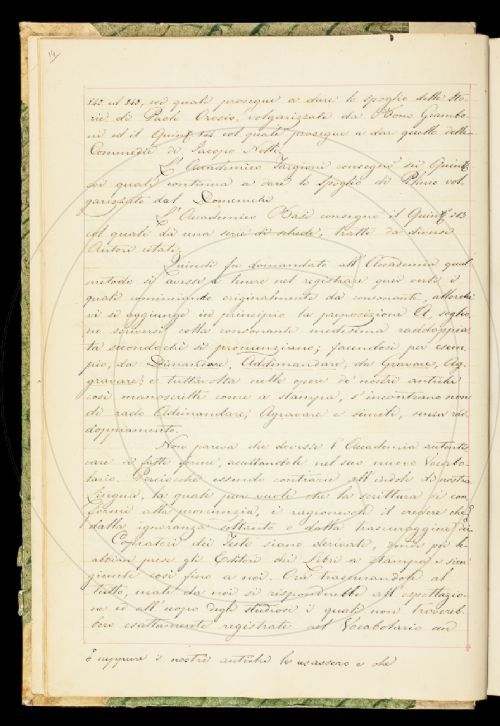 14
242 ed 243, nei quali prosegue a dare lo spoglio delle Sto-
rie di Paolo Orosio, volgarizzate da Bono Giambo-
ni ed il col quale prosegue a dar quello delle
Commedie di Jacopo Nelli.
L'Accademico Targioni consegnò sei Quint.
nei quali continua a dare lo spoglio di Plinio vol-
garizzato dal Domenichi
L'Accademico consegnò il Quint. 213
col quale dà una serie di schede, tratte da diversi
Autori citati.
Quindi fu domandato all'Accademia qual
metodo si avesse a tenere nel registrare quei verbi i
quali cominciando originalmente da consonante, allorchè
vi si aggiunge in principio la preposizione A, soglio-
no scriversi colla consonante medesima raddoppia-
ta secondochè si pronunziano; facendosi per esem-
pio, da Dimandare, Addimandare; da Gravare, Ag-
gravare; e tuttavolta nelle opere de' nostri antichi
così manoscritte come a stampa, s'incontrano non
di rado Adimandare; Agravare e simili, senza rad-
doppiamento.
Non pareva che dovesse l'Accademia autenti-
care sì fatte forme, accettandole nel suo nuovo Vocabo-
lario. Perciocchè essendo contrarie all'indole di nostra
Lingua, la quale pur vuole che la scrittura si con-
formi alla pronunzia, è ragionevole il credere che
dalla ignoranza soltanto e dalla trascuraggine dei
Copiatori dei Testi siano derivate, donde poi le
abbian prese gli Editori dei Libri a stampa e sien
giunte così fino a noi. Ora trasandandole al
tutto, male da noi si risponderebbe all'espettazio-
ne ed all'uopo degli studiosi i quali non trovereb-
bero esattamente registrate nel Vocabolario un
è neppure i nostri antichi le usassero e che